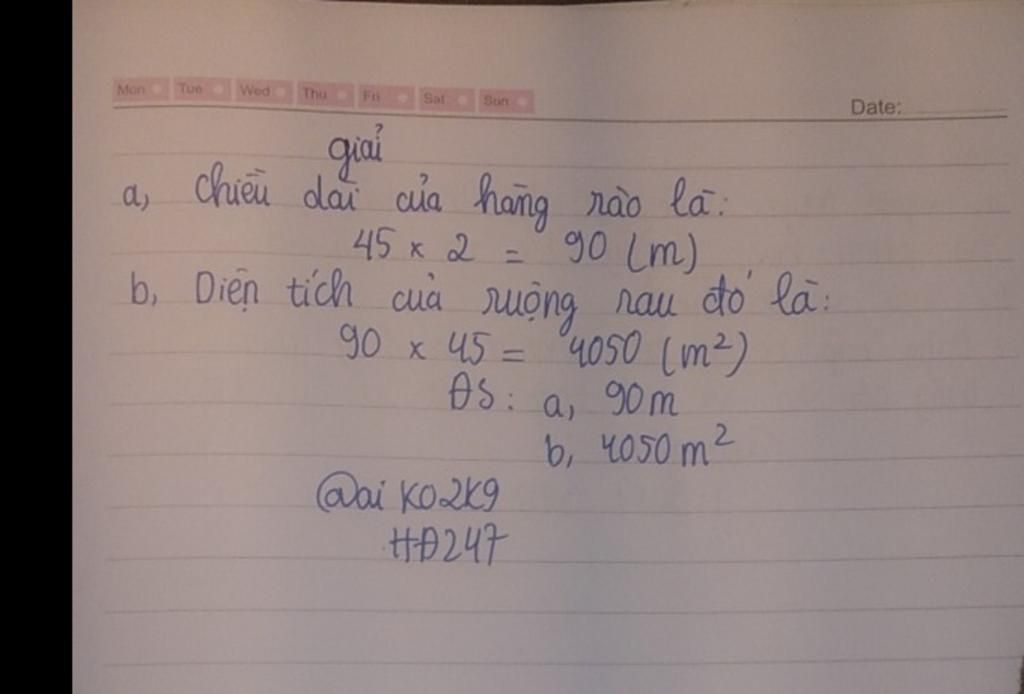 Mon Tue Wed Thu Fri Sat Sun
Date:
giải
a, Chiều dài của hàng rào là:
45 x 2 = 90 (m)
b, Diện tích của ruộng rau đó là:
90 x 45 = 4050 (m²)
ĐS: a, 90m
b, 4050 m²
@ai KO2K9
HĐ247